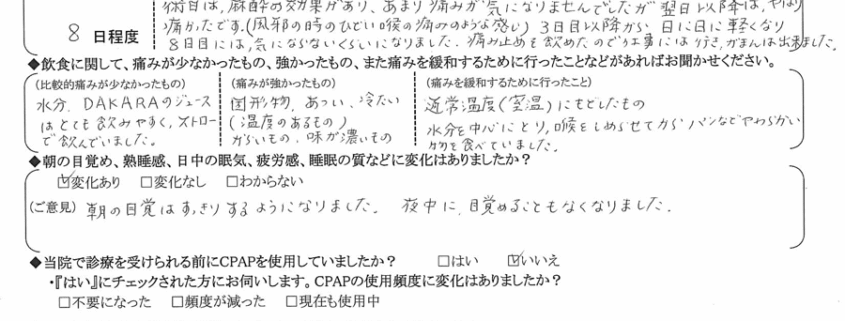 術日は、麻酔の効果があり、あまり痛みが気になりませんでしたが翌日以降は、やはり
痛かったです。(風邪の時のひどい喉の痛みのような感じ) 3日目以降から 日に日に軽くなり
8 日程度
8日目には、気にならないくらいになりました。痛み止めを飲めたので食事には行き、がまんは出来ました。
◆飲食に関して、痛みが少なかったもの、強かったもの、また痛みを緩和するために行ったことなどがあればお聞かせください。
(比較的痛みが少なかったもの) (痛みが強かったもの) (痛みを緩和するために行ったこと)
水分、DAKARAのジュース 固形物、あつい、冷たい 通常温度(室温)にもどしたもの
はとても飲みやすく、ストロー (温度のあるもの) 水分を中心にとり、喉をしめらせてからパンなどやわらかい
で飲んでいました。 からいもの、味が濃いもの 物を食べていました。
◆朝の目覚め、熟睡感、日中の眠気、疲労感、睡眠の質などに変化はありましたか?
☑変化あり □変化なし □わからない
(ご意見) 朝の目覚はすっきりするようになりました。 夜中に、目覚めることもなくなりました。
◆当院で診療を受けられる前にCPAPを使用していましたか? □はい ☑いいえ
・『はい』にチェックされた方にお伺いします。CPAPの使用頻度に変化はありましたか?
□不要になった □頻度が減った □現在も使用中